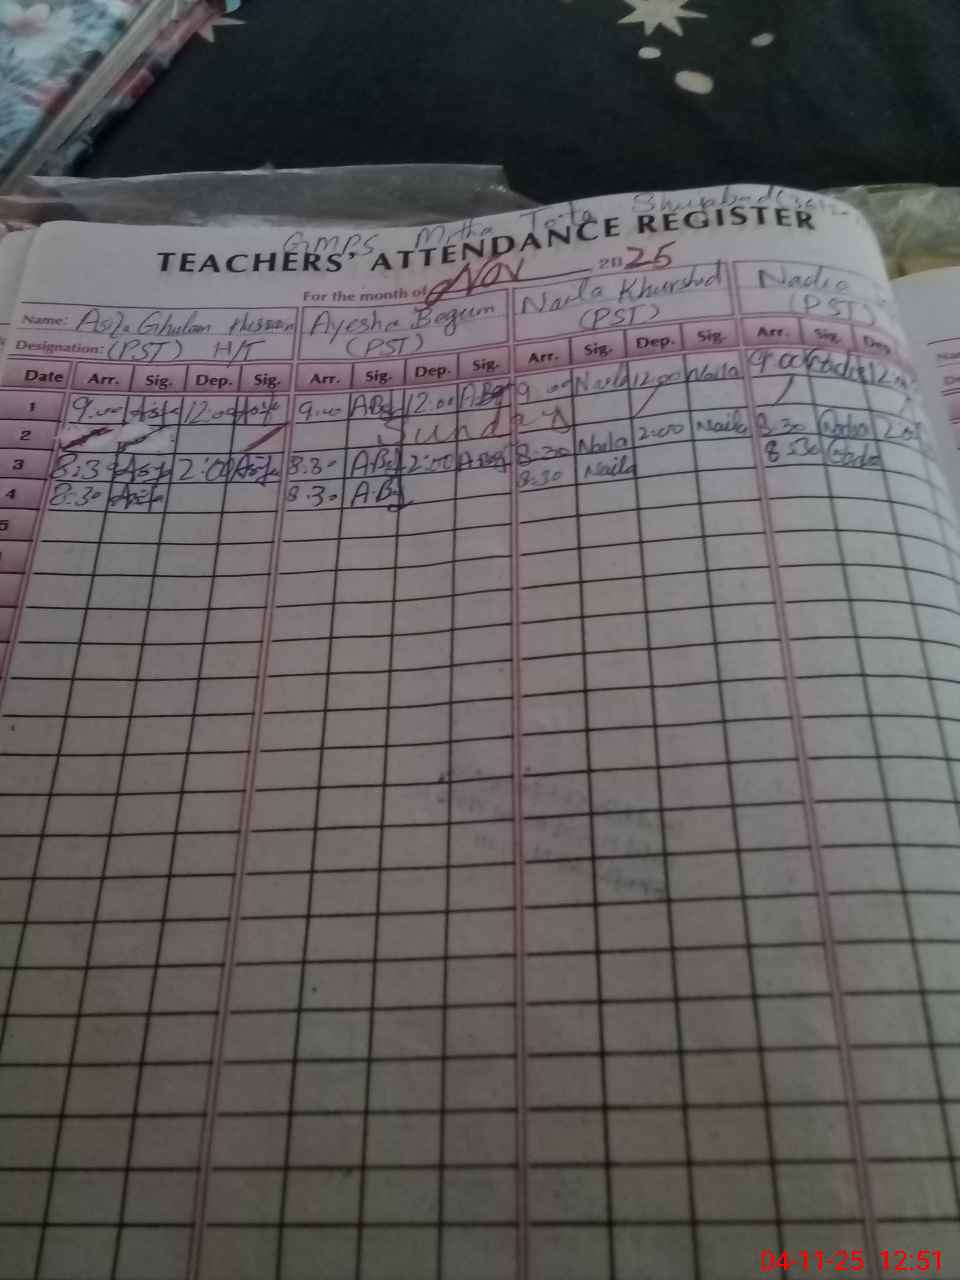 GMPS Mitha Tota
TEACHERS' ATTENDANCE REGISTER
For the month of Nov 2025
Name: Asifa Ghulam Hussain Ayesha Begum Naila Khurshid Nadia
Designation: (PST) H/T (PST) (PST) (PST)
Date Arr. Sig. Dep. Sig. Arr. Sig. Dep. Sig. Arr. Sig. Dep. Sig. Arr. Sig. Dep.
1 9.00 Asifa 12:00 Asifa 9.00 ABg 12:00 ABg 9.00 Naila 12:00 Naila 9:00 Nadia 12:00
2 Sunday
3 8:30 Asifa 2:00 Asifa 8:30 ABg 2:00 ABg 8:30 Naila 2:00 Naila 8.30 Nadia
4 8:30 Asifa 8:30 A.Bg 8:30 Naila 8:30
5
04-11-25 12:51